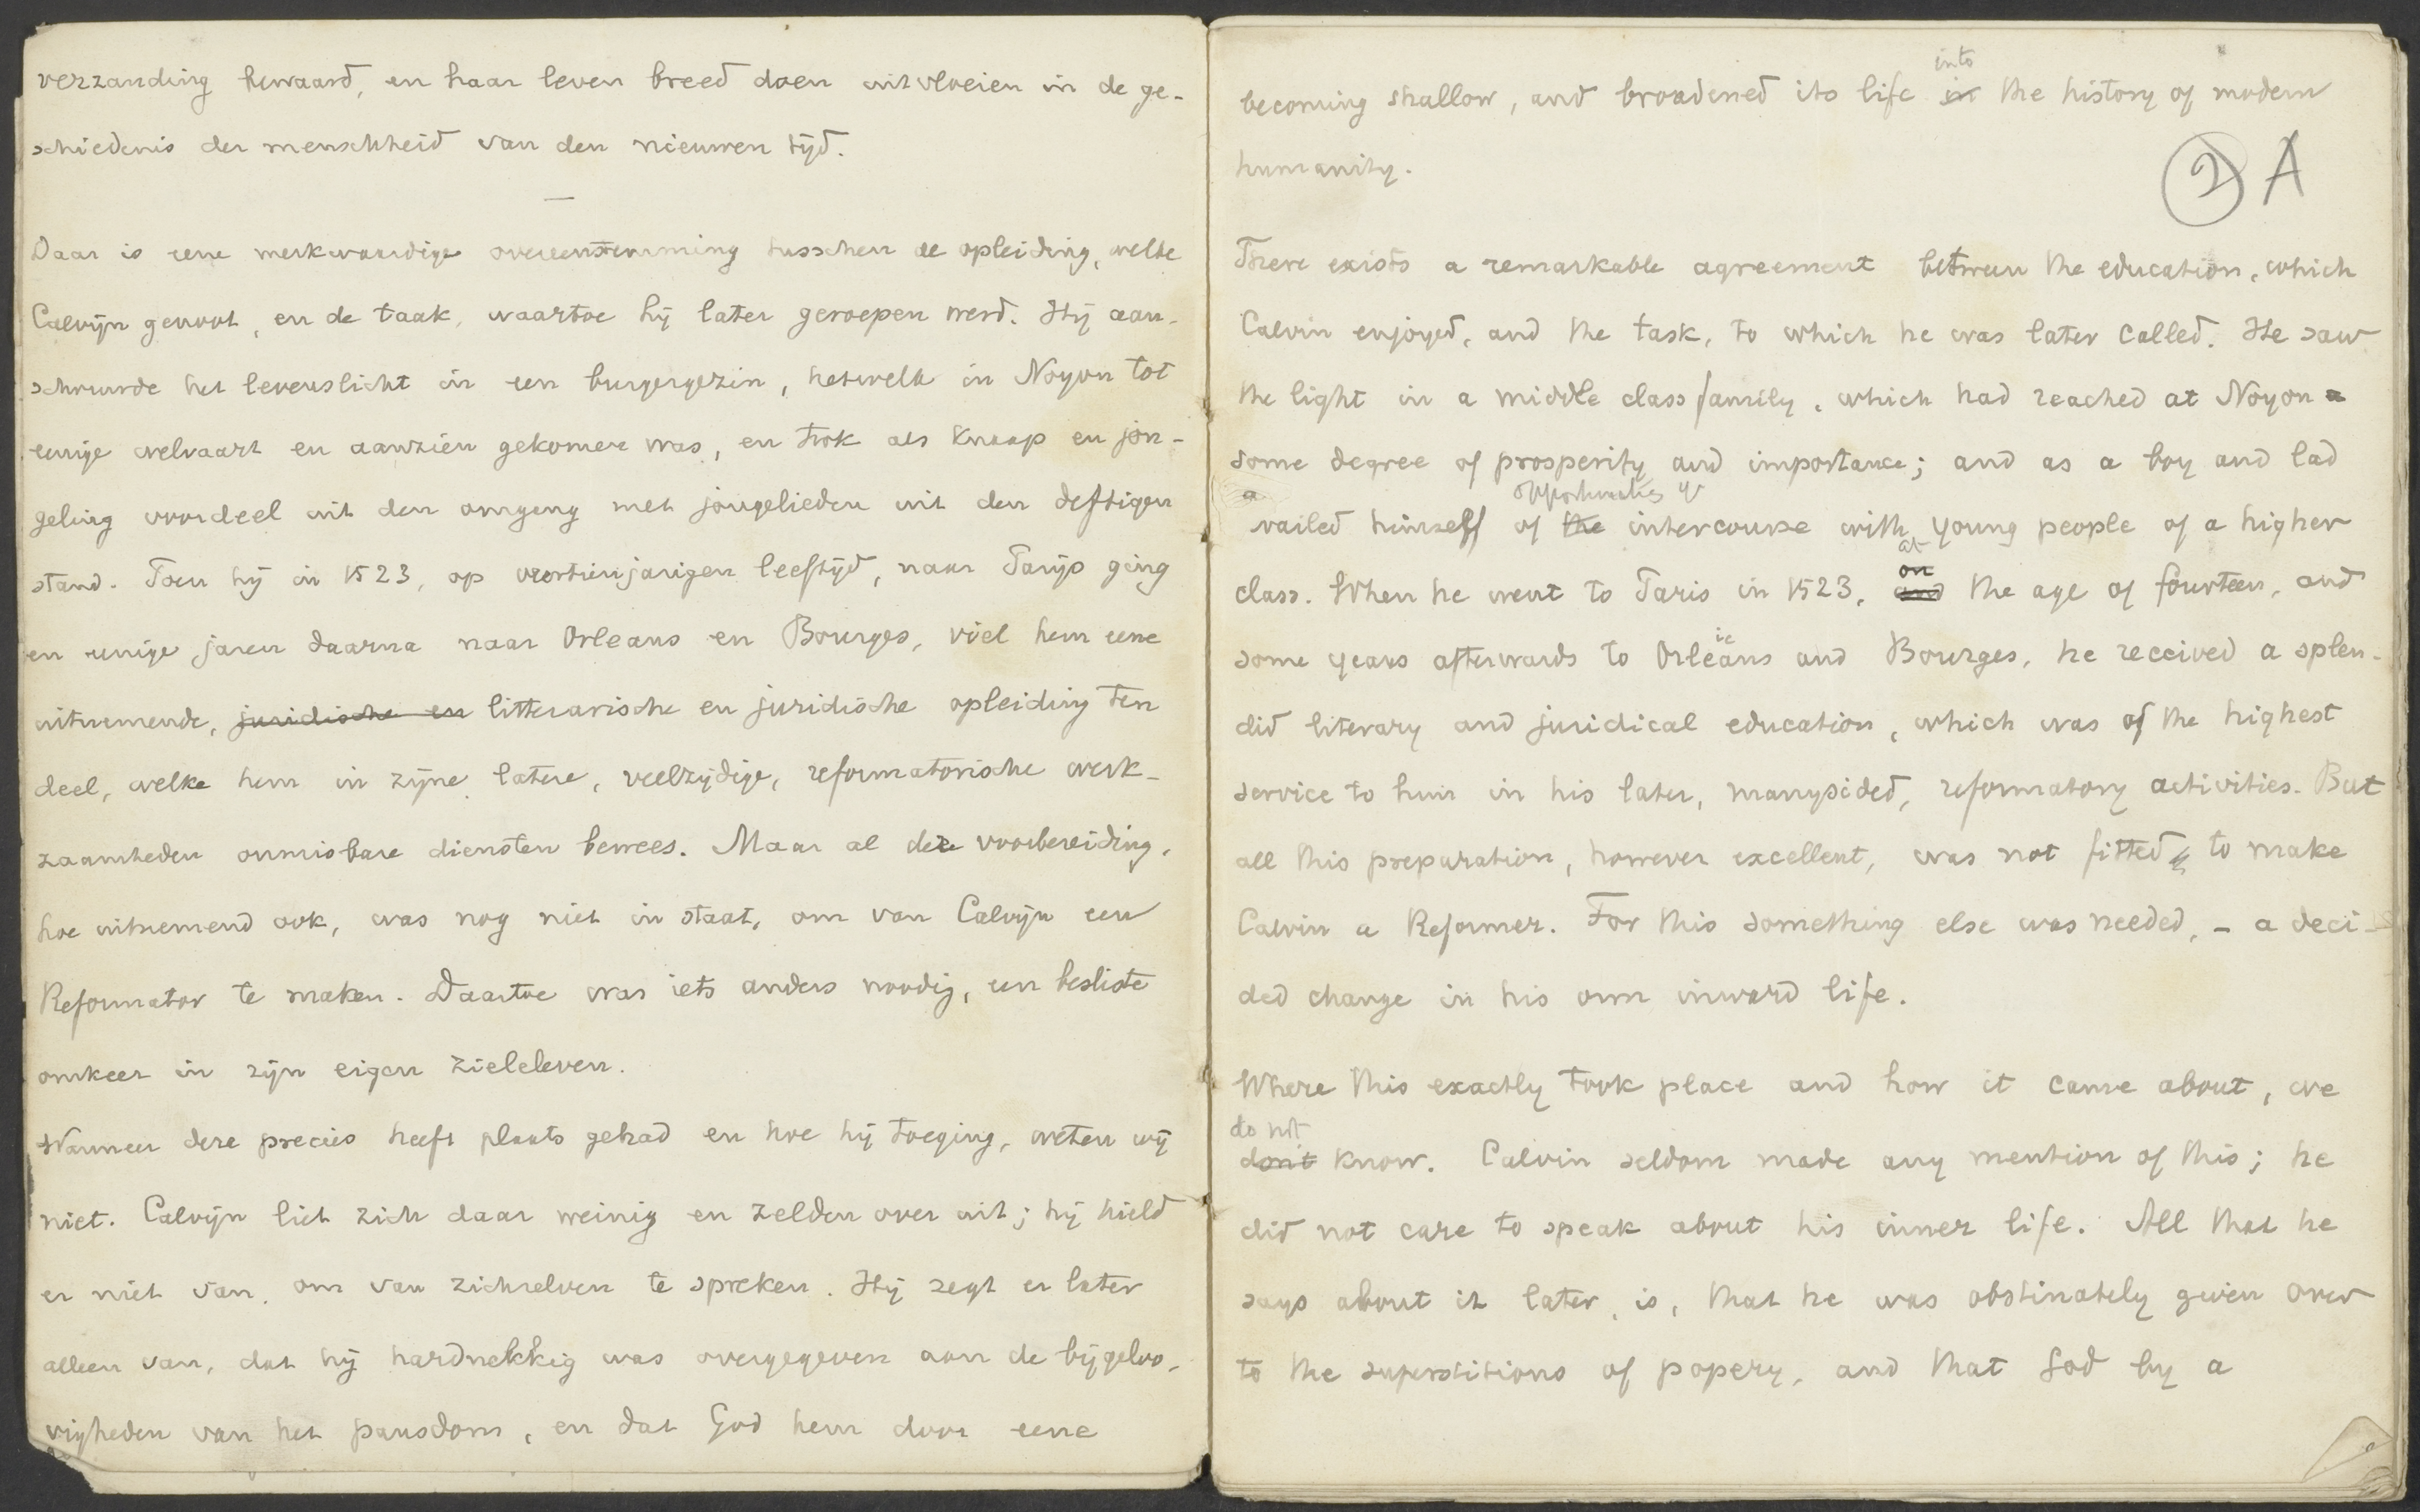 verzanding bewaard, en haar leven breed doen uitvloeien in de ge-
schiedenis der menschheid van den nieuwen tijd.
—
Daar is eene merkwaardige overeenstemming tusschen de opleiding, welke
Calvijn genoot, en de taak, waartoe hij later geroepen werd. Hij aan-
schouwde het levenslicht in een burgergezin, hetwelk in Noyon tot
eenige welvaart en aanzien gekomen was, en trok als knaap en jon-
geling voordeel uit den omgang met jongelieden uit den deftigen
stand. Toen hij in 1523, op veertienjarigen leeftijd, naar Parijs ging
en eenige jaren daarna naar Orleans en Bourges, viel hem eene
uitnemende, juridische en litterarische en juridische opleiding ten
deel, welke hem in zijne latere, veelzijdige, reformatorische werk-
zaamheden onmisbare diensten bewees. Maar al deze voorbereiding,
hoe uitnemend ook, was nog niet in staat, om van Calvijn een
Reformator te maken. Daartoe was iets anders noodig, een besliste
omkeer in zijn eigen zieleleven.
Wanneer deze precies heeft plaats gehad en hoe hij toeging, weten wij
niet. Calvijn liet zich daar weinig en zelden over uit; hij hield
er niet van, om van zichzelven te spreken. Hij zegt er later
alleen van, dat hij hardnekkig was overgegeven aan de bijgeloo-
vigheden van het pausdom, en dat God hem door eene
into
becoming shallow, and broadened its life in the history of modern
humanity.
2 A
There exists a remarkable agreement between the education, which
Calvin enjoyed, and the task, to which he was later called. He saw
the light in a middle class family, which had reached at Noyon a
some degree of prosperity and importance; and as a boy and lad
a opportunities of
vailed himself of the intercourse with young people of a higher
at
on
class. When he went to Paris in 1523, and the age of fourteen, and
some years afterwards to Orleans and Bourges, he received a splen-
did literary and juridical education, which was of the highest
service to him in his later, manysided, reformatory activities. But
all this preparation, however excellent, was not fitted to make
Calvin a Reformer. For this something else was needed, - a deci-
ded change in his own inward life.
Where this exactly took place and how it came about, we
do not
dont know. Calvin seldom made any mention of this; he
did not care to speak about his inner life. All that he
says about it later, is, that he was obstinately given over
to the superstitions of popery, and that God by a